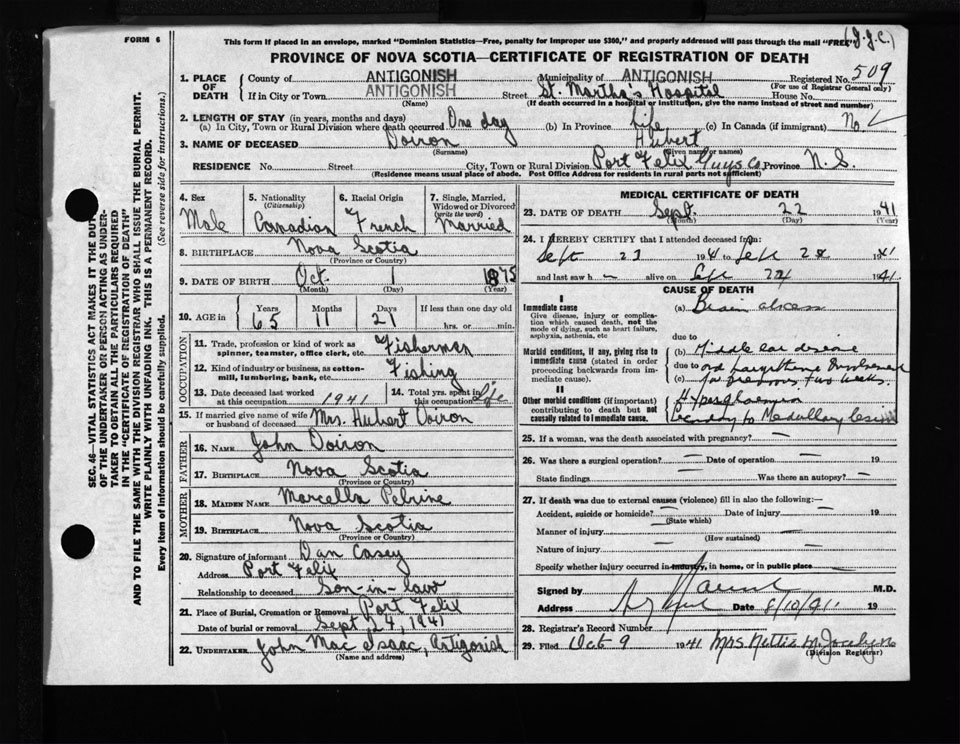 FORM 6
This form if placed in an envelope, marked "Dominion Statistics—Free, penalty for improper use $300," and properly addressed will pass through the mail "FREE"
(J.J.C.)
PROVINCE OF NOVA SCOTIA—CERTIFICATE OF REGISTRATION OF DEATH
1. PLACE OF DEATH County of ANTIGONISH Municipality of ANTIGONISH Registered No. 509
(For use of Registrar General only)
If in City or Town ANTIGONISH Street St. Martha's Hospital House No.
(Name) (If death occurred in a hospital or institution, give the name instead of street and number)
2. LENGTH OF STAY (in years, months and days)
(a) In City, Town or Rural Division where death occurred One day (b) In Province Life (c) In Canada (if immigrant) No.
3. NAME OF DECEASED Doiron Hubert
(Surname) (Given name or names)
RESIDENCE No. Street City, Town or Rural Division Port Felix Guys Co Province N. S.
(Residence means usual place of abode. Post Office Address for residents in rural parts not sufficient)
4. Sex Male
5. Nationality (Citizenship) Canadian
6. Racial Origin French
7. Single, Married, Widowed or Divorced (write the word) Married
8. BIRTHPLACE Nova Scotia
(Province or Country)
9. DATE OF BIRTH Oct. 1 1875
(Month) (Day) (Year)
10. AGE in Years 65 Months 11 Days 21 If less than one day old hrs. or min.
OCCUPATION
11. Trade, profession or kind of work as spinner, teamster, office clerk, etc. Fisherman
12. Kind of industry or business, as cotton-mill, lumbering, bank, etc. Fishing
13. Date deceased last worked at this occupation 1941
14. Total yrs. spent in this occupation Life
15. If married give name of wife or husband of deceased Mrs. Hubert Doiron
FATHER
16. NAME John Doiron
17. BIRTHPLACE Nova Scotia
(Province or Country)
MOTHER
18. MAIDEN NAME Marcella Pelrine
19. BIRTHPLACE Nova Scotia
(Province or Country)
20. Signature of informant Dan Casey
Address Port Felix
Relationship to deceased Son-in-law
21. Place of Burial, Cremation or Removal Port Felix
Date of burial or removal Sept 24, 1941
22. UNDERTAKER John Mac Isaac, Antigonish
(Name and address)
MEDICAL CERTIFICATE OF DEATH
23. DATE OF DEATH Sept. 22 1941
(Month) (Day) (Year)
24. I HEREBY CERTIFY that I attended deceased from:
Sept 21 1941 to Sept 22 1941
and last saw h alive on Sept 1941.
CAUSE OF DEATH
I
Immediate cause
Give disease, injury or complication which caused death, not the mode of dying, such as heart failure, asphyxia, asthenia, etc
(a) Brain abcess
due to
Morbid conditions, if any, giving rise to immediate cause (stated in order proceeding backwards from immediate cause).
(b) Middle ear disease
due to
(c) for previous two weeks.
II
Other morbid conditions (if important) contributing to death but not causally related to immediate cause.
to Medullary
25. If a woman, was the death associated with pregnancy? —
26. Was there a surgical operation? — Date of operation — 19
State findings — Was there an autopsy? —
27. If death was due to external causes (violence) fill in also the following:—
Accident, suicide or homicide? — Date of injury — 19
(State which)
Manner of injury —
(How sustained)
Nature of injury —
Specify whether injury occurred in industry, in home, or in public place —
Signed by M.D.
Address Date 8/10/41 19
28. Registrar's Record Number
29. Filed Oct 9 1941 Mrs. Nettie M.
(Division Registrar)
SEC. 46—VITAL STATISTICS ACT MAKES IT THE DUTY
OF THE UNDERTAKER OR PERSON ACTING AS UNDER-
TAKER TO OBTAIN ALL THE PARTICULARS REQUIRED
IN THE "CERTIFICATE OF REGISTRATION OF DEATH"
AND TO FILE THE SAME WITH THE DIVISION REGISTRAR WHO SHALL ISSUE THE BURIAL PERMIT.
WRITE PLAINLY WITH UNFADING INK. THIS IS A PERMANENT RECORD.
Every item of information should be carefully supplied. (See reverse side for instructions.)